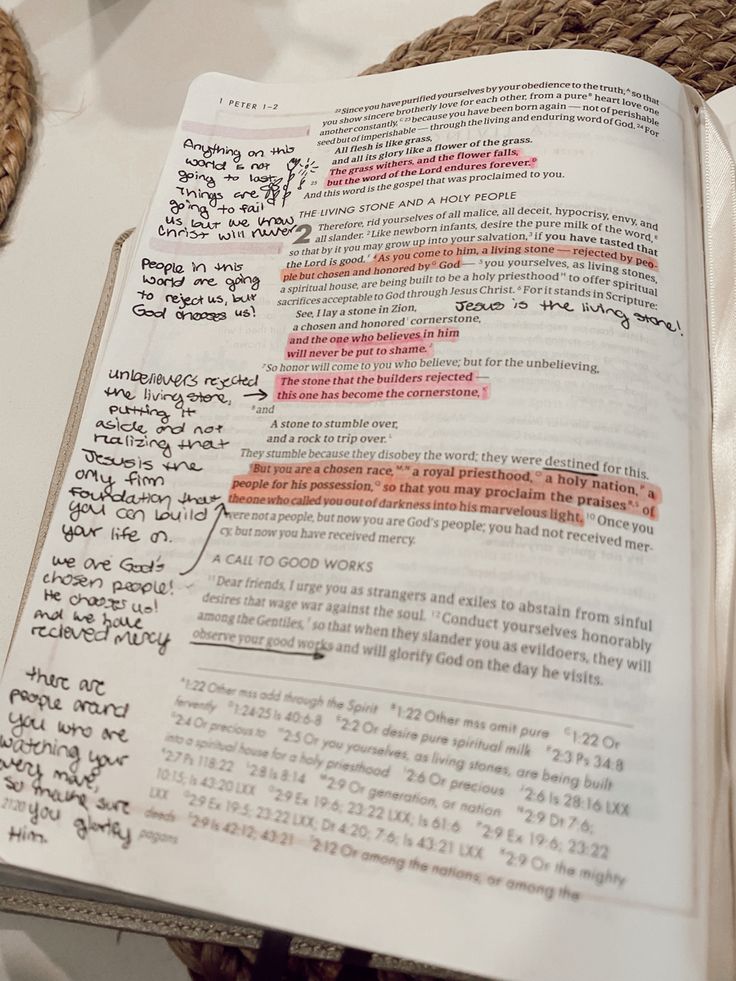 1 PETER 1–2
²²Since you have purified yourselves by your obedience to the truth,ᴬ so that
you show sincere brotherly love for each other, from a pureᴮ heart love one
another constantly,ᶜ ²³because you have been born again — not of perishable
seed but of imperishable — through the living and enduring word of God. ²⁴For
All flesh is like grass,
and all its glory like a flower of the grass.
The grass withers, and the flower falls,
²⁵ but the word of the Lord endures forever.ᴰ
And this word is the gospel that was proclaimed to you.
THE LIVING STONE AND A HOLY PEOPLE
2 Therefore, rid yourselves of all malice, all deceit, hypocrisy, envy, and
all slander. ²Like newborn infants, desire the pure milk of the word,ᴱ
so that by it you may grow up into your salvation,³ if you have tasted that
the Lord is good.ᶠ ⁴As you come to him, a living stone — rejected by peo-
ple but chosen and honored byᴳ God — ⁵you yourselves, as living stones,
a spiritual house, are being built to be a holy priesthoodᴴ to offer spiritual
sacrifices acceptable to God through Jesus Christ. ⁶For it stands in Scripture:
See, I lay a stone in Zion,
a chosen and honoredᴵ cornerstone,
and the one who believes in him
will never be put to shame.ᴶ
⁷So honor will come to you who believe; but for the unbelieving,
The stone that the builders rejected —
this one has become the cornerstone,ᴷ
⁸and
A stone to stumble over,
and a rock to trip over.ᴸ
They stumble because they disobey the word; they were destined for this.
⁹But you are a chosen race,ᴹ,ᴺ a royal priesthood,ᴼ a holy nation,ᴾ a
people for his possession,Q so that you may proclaim the praisesᴿ,ˢ of
the one who called you out of darkness into his marvelous light. ¹⁰Once you
were not a people, but now you are God's people; you had not received mer-
cy, but now you have received mercy.
A CALL TO GOOD WORKS
¹¹Dear friends, I urge you as strangers and exiles to abstain from sinful
desires that wage war against the soul. ¹²Conduct yourselves honorably
among the Gentiles,ᵀ so that when they slander you as evildoers, they will
observe your good works and will glorify God on the day he visits.
ᴬ1:22 Other mss add through the Spirit ᴮ1:22 Other mss omit pure ᶜ1:22 Or
fervently ᴰ1:24-25 Is 40:6-8 ᴱ2:2 Or desire pure spiritual milk ᶠ2:3 Ps 34:8
ᴳ2:4 Or precious to ᴴ2:5 Or you yourselves, as living stones, are being built
into a spiritual house for a holy priesthood ᴵ2:6 Or precious ᴶ2:6 Is 28:16 LXX
ᴷ2:7 Ps 118:22 ᴸ2:8 Is 8:14 ᴹ2:9 Or generation, or nation ᴺ2:9 Dt 7:6;
10:15; Is 43:20 LXX ᴼ2:9 Ex 19:6; 23:22 LXX; Is 61:6 ᴾ2:9 Ex 19:6; 23:22
LXX Q2:9 Ex 19:5; 23:22 LXX; Dt 4:20; 7:6; Is 43:21 LXX ᴿ2:9 Or the mighty
deeds ˢ2:9 Is 42:12; 43:21 ᵀ2:12 Or among the nations, or among the
pagans
Anything on this
world is not
going to last.
Things are
going to fail
us but we know
Christ will never
People in this
world are going
to reject us, but
God chooses us!
Jesus is the living stone!
unbelievers rejected
the living stone,
putting it
aside and not
realizing that
Jesus is the
only firm
foundation that
you can build
your life on.
we are God's
chosen people!
He chooses us!
and we have
recieved mercy
there are
people around
you who are
watching your
every move,
so make sure
you glorify
Him.